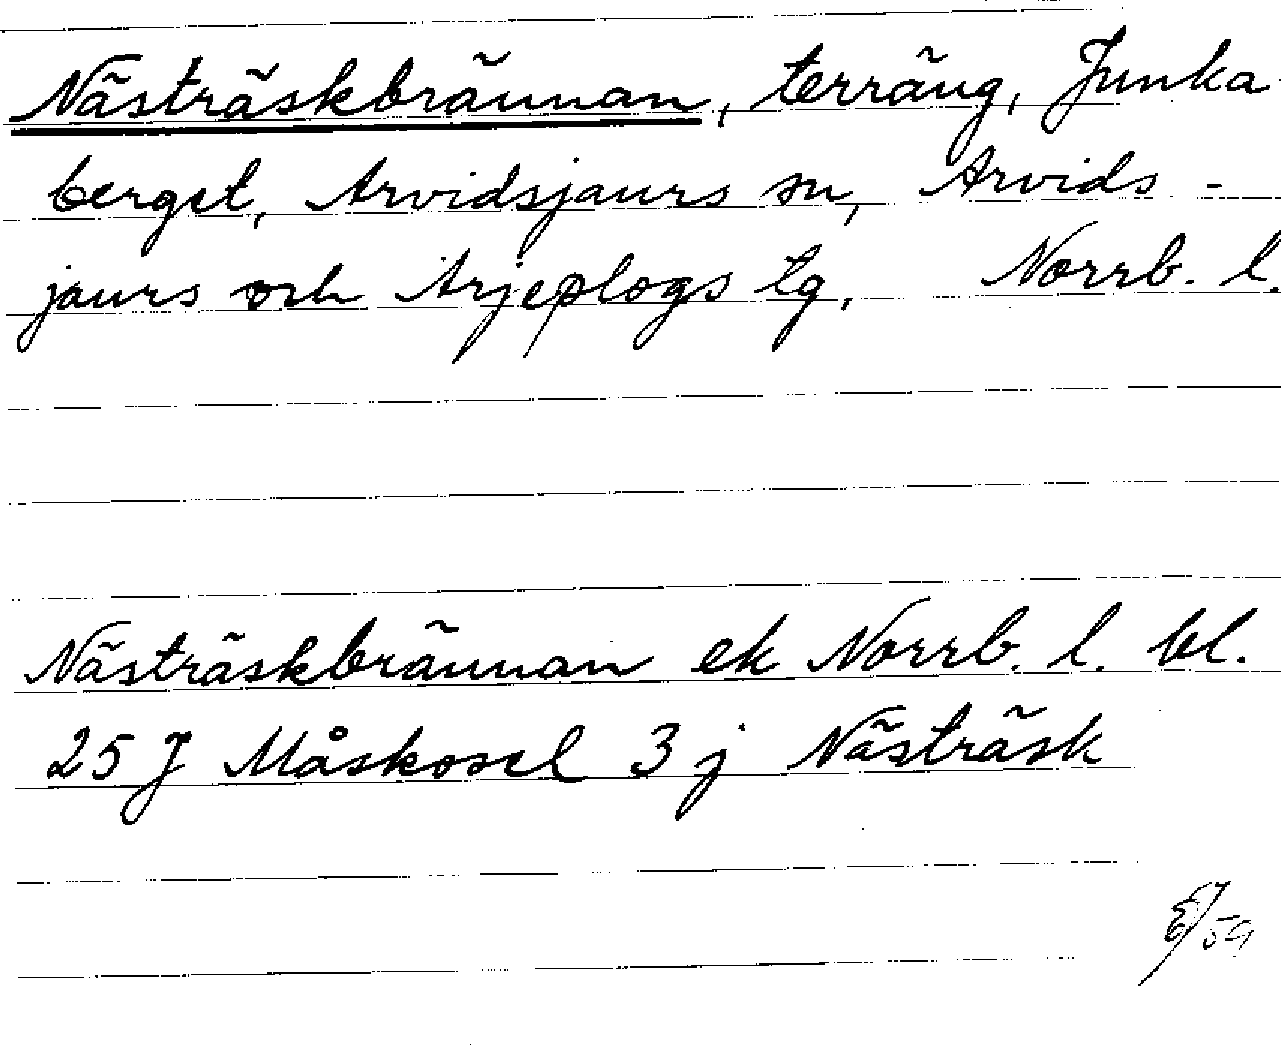 Nästräskbrännan, terräng, Junka
berget, Arvidsjaurs sn, Arvids -
jaurs och Arjeplogs tg, Norrb. l.
Nästräskbrännan ek Norrb. l. bl.
25 J Måskosel 3 j Nästräsk
59